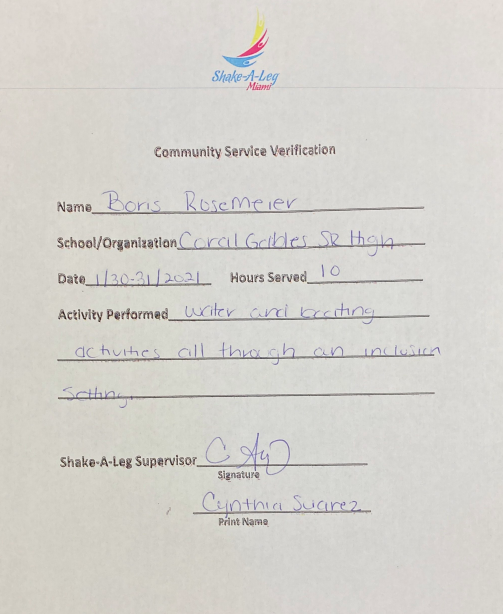 Shake-A-Leg
Miami
Community Service Verification
Name Boris Rosemeier
School/Organization Coral Gables SR High
Date 1/30-31/2021 Hours Served 10
Activity Performed Water and boating
activities all through an inclusion
setting.
Shake-A-Leg Supervisor
Signature
Cynthia Suarez
Print Name